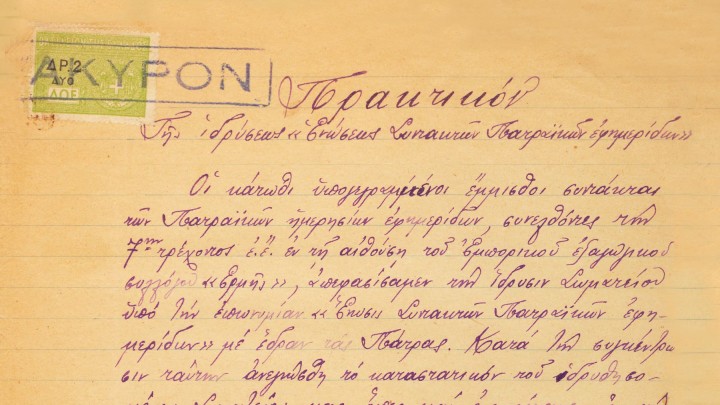 ΔΡ 2
ΔΥΟ
ΔΟΕ
ΑΚΥΡΟΝ
Πρακτικόν
Τῆς ἱδρύσεως «Ἑνώσεως Συντακτῶν Πατραϊκῶν ἐφημερίδων»
Οἱ κάτωθι ὑπογεγραμμένοι ἔμμισθοι συντάκται
τῶν Πατραϊκῶν ἡμερησίων ἐφημερίδων, συνελθόντες τὴν
7ην τρέχοντος ἐ.ἔ. ἐν τῇ αἰθούσῃ τοῦ Ἐμπορικοῦ
συλλόγου «Ἑρμῆς», ἀπεφασίσαμεν τὴν ἵδρυσιν Σωματείου
ὑπό τὴν ἐπωνυμίαν «Ἕνωσις Συντακτῶν Πατραϊκῶν ἐφη-
μερίδων» μέ ἕδραν τάς Πάτρας. Κατά τὴν συγκέντρω
σιν ταύτην ἀνεγνώσθη τό καταστατικόν τοῦ ἱδρυθησο-